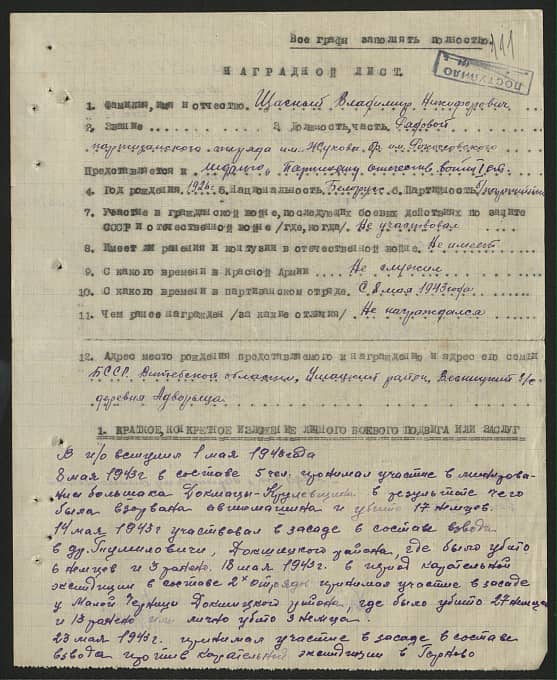 Все графы заполнять полностью.
ПОСТУПИЛО
НАГРАДНОЙ ЛИСТ.
1. Фамилия, имя и отчество. Щасный Владимир Никифорович
2. Звание 3. Должность, часть. Рядовой
партизанского отряда им. Жукова бр. им. Рокоссовского
Представляется к медалью „Партизану отечеств. войны" I ст.
4. Год рождения. 1926г. 5. Национальность. Белорус 6. Партийность
7. Участие в гражданской войне, последующих боевых действиях по защите
СССР и отечественной войне /где, когда/. Не участвовал
8. Имеет ли ранения и контузии в отечественной войне. Не имеет
9. С какого времени в Красной Армии .... Не служил
10. С какого времени в партизанском отряде. С 8 мая 1943 года
11. Чем ранее награжден /за какие отличия/ Не награждался
12. Адрес место рождения представляемого к награждению и адрес его семьи
БССР. Витебской области, Ушацкий район, с/с
деревня Адворыца.
1. КРАТКОЕ, КОНКРЕТНОЕ ИЗЛОЖЕНИЕ ЛИЧНОГО БОЕВОГО ПОДВИГА ИЛИ ЗАСЛУГ
В п/о вступил 1 мая 1943 года
8 мая 1943г в составе 5 чел. принимал участие в минирова-
нии большака Докшицы-Крулевщина в результате чего
была взорвана автомашина и убито 17 немцев.
14 мая 1943г участвовал в засаде в составе взвода
в др. Докшицкого района, где было убито
немцев и 3 ранено. 18 мая 1943г. в период карательной
экспедиции в составе 2х отрядов принимал участие в засаде
у Малой Черницы Докшицкого района, где было убито 27 немцев
и 13 ранено лично убито 3 немца.
23 мая 1943г. принимал участие в засаде в составе
взвода против карательной экспедиции в